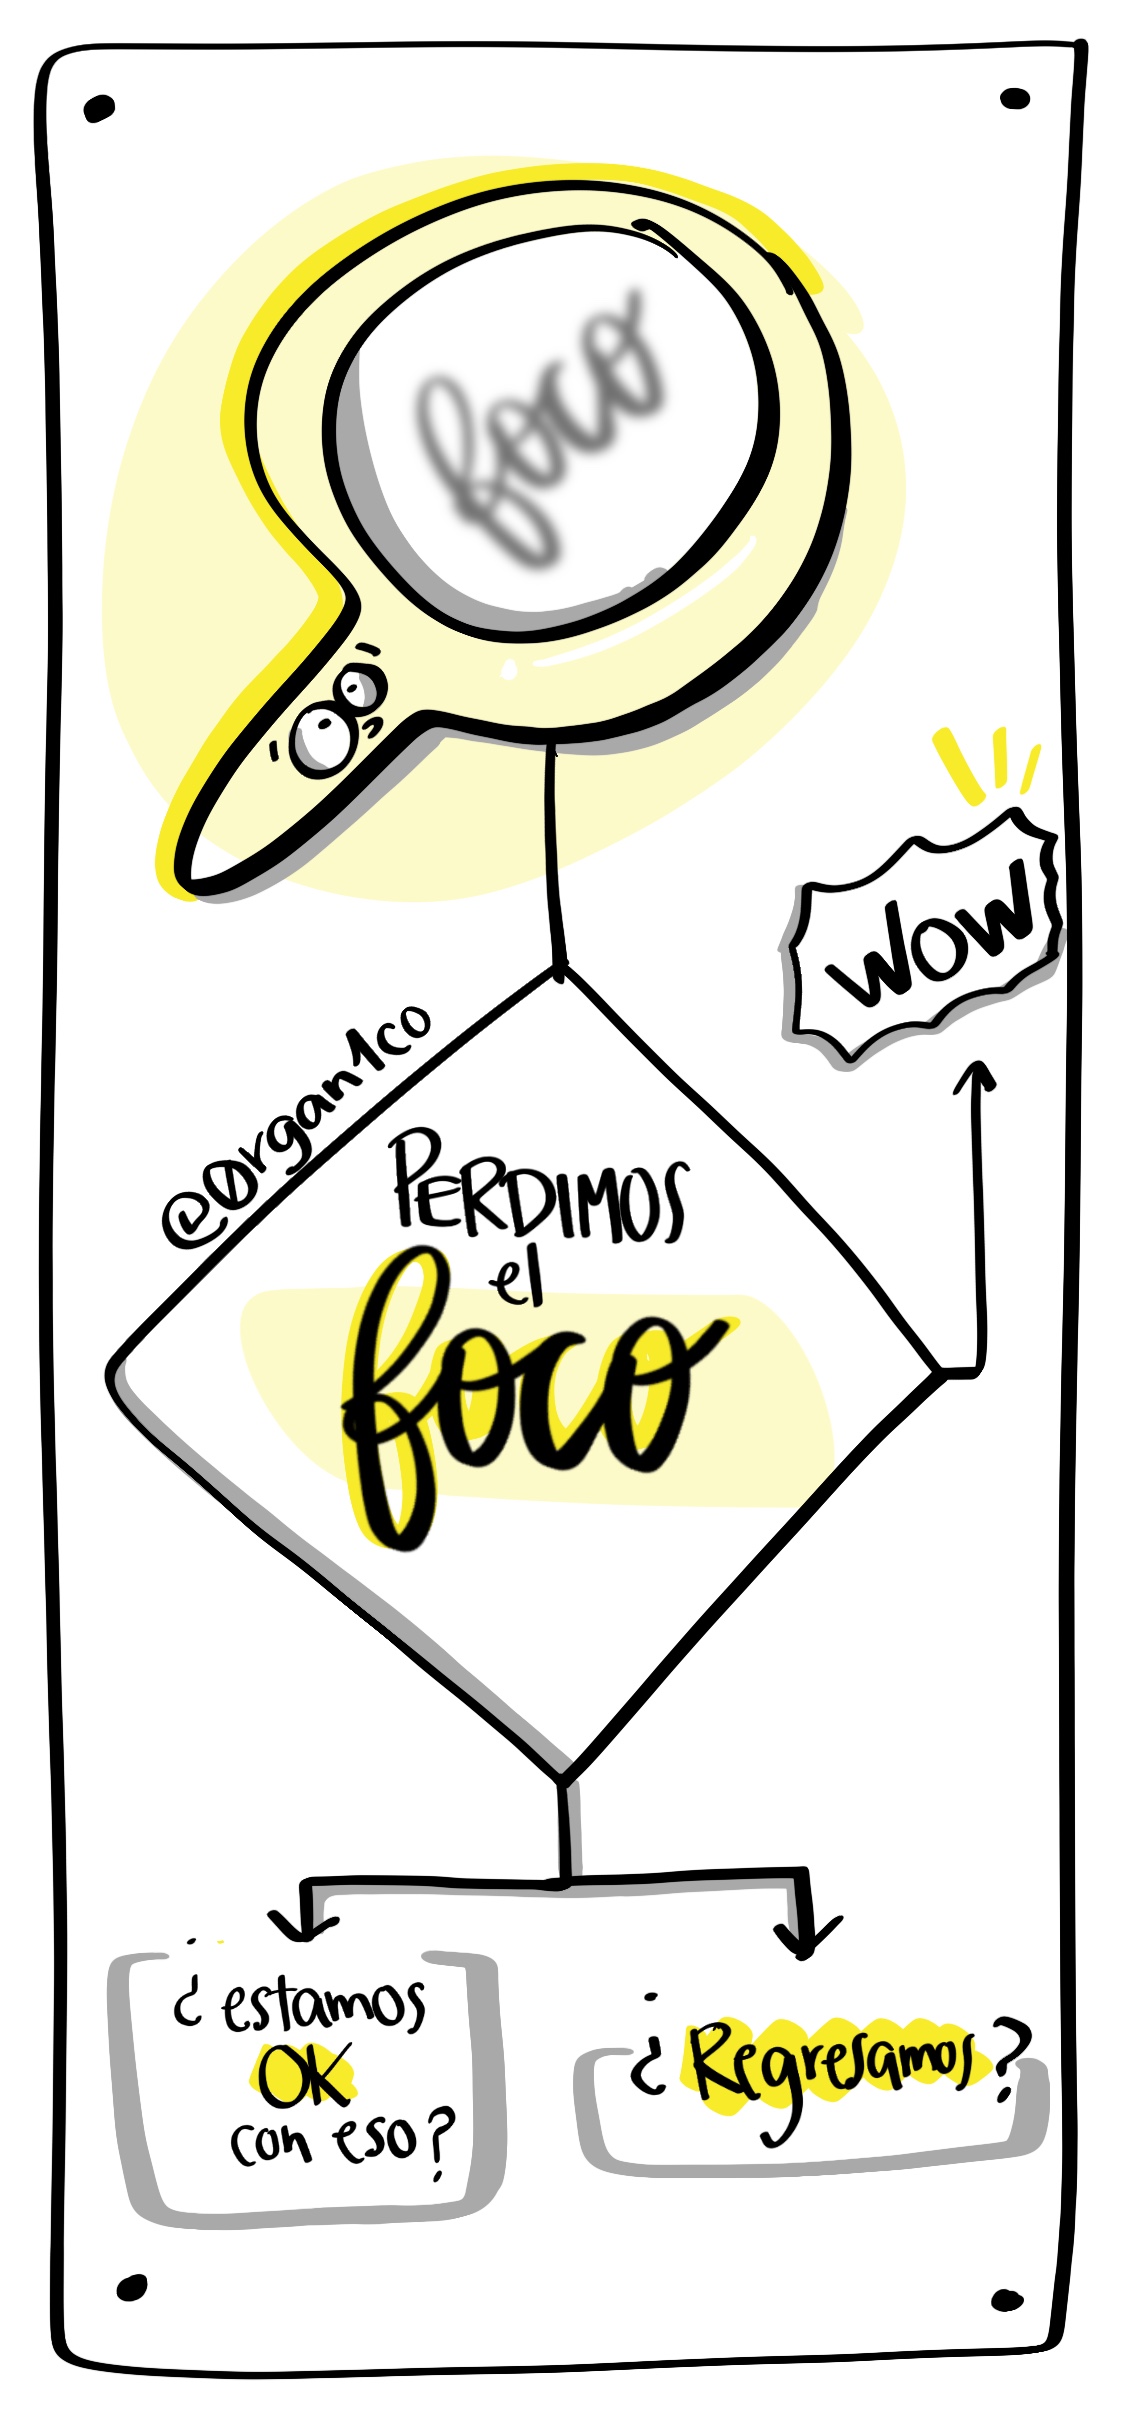 foco
WOW
@Ørgan1co
PERDIMOS
el
foco
¿estamos
OK
con eso?
¿Regresamos?